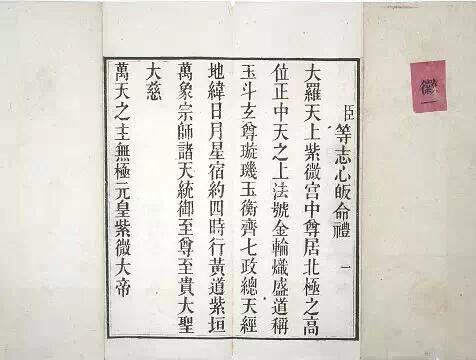 臣等志心皈命禮
一
大羅天上紫微宮中尊居北極之高
位正中天之上法號金輪熾盛道稱
玉斗玄尊璇璣玉衡齊七政總天經
地緯日月星宿約四時行黃道紫垣
萬象宗師諸天統御至尊至貴大聖
大慈
萬天之主無極元皇紫微大帝